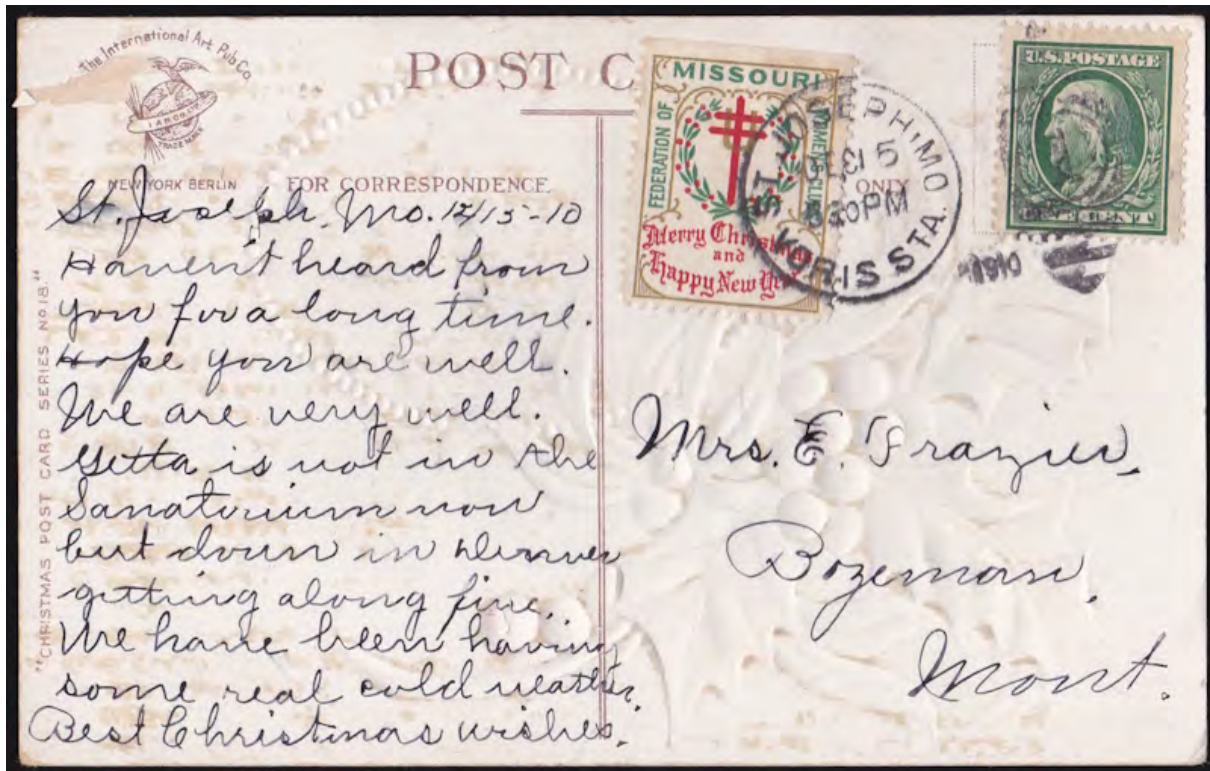 The International Art Pub Co.
TRADE MARK
NEW YORK BERLIN
POST C
FOR CORRESPONDENCE
ONLY
"CHRISTMAS POST CARD SERIES NO. 18."
MISSOURI
FEDERATION OF
WOMEN'S CLUBS
Merry Christmas
and
Happy New Year
ST. JOSEPH, MO.
DEC 15
PM
STA.
1910
U.S. POSTAGE
ONE CENT
St. Joseph, Mo. 12/15-10
Haven't heard from
you for a long time.
Hope you are well.
We are very well.
Yetta is not in the
Sanatorium now
but down in Denver
getting along fine.
We have been having
some real cold weather.
Best Christmas wishes.
Mrs. E. Frazier,
Bozeman,
Mont.